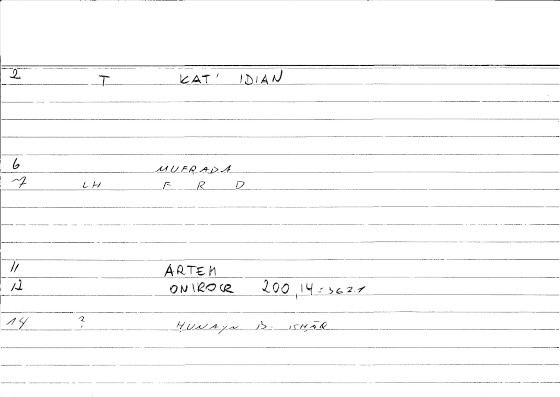 2 T KAT' IDIAN
6 MUFRADA
7 LH F R D
11 ARTEM
12 ONIROCR 200,14 = 362.1
14 ? HUNAYN B. ISHĀQ